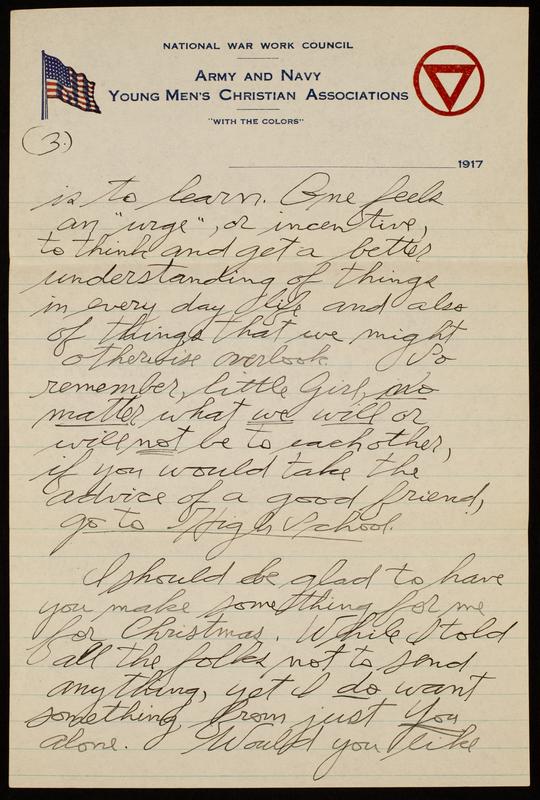 NATIONAL WAR WORK COUNCIL
ARMY AND NAVY
YOUNG MEN'S CHRISTIAN ASSOCIATIONS
"WITH THE COLORS"
(3.)
1917
is to learn. One feels
an "urge", or incentive,
to think and get a better
understanding of things
in every day life and also
of things that we might
otherwise overlook. So
remember, little Girl, no
matter what we will or
will not be to each other,
if you would take the
advice of a good friend,
go to High School.
I should be glad to have
you make something for me
for Christmas. While I told
all the folks not to send
anything, yet I do want
something from just You
alone. Would you like